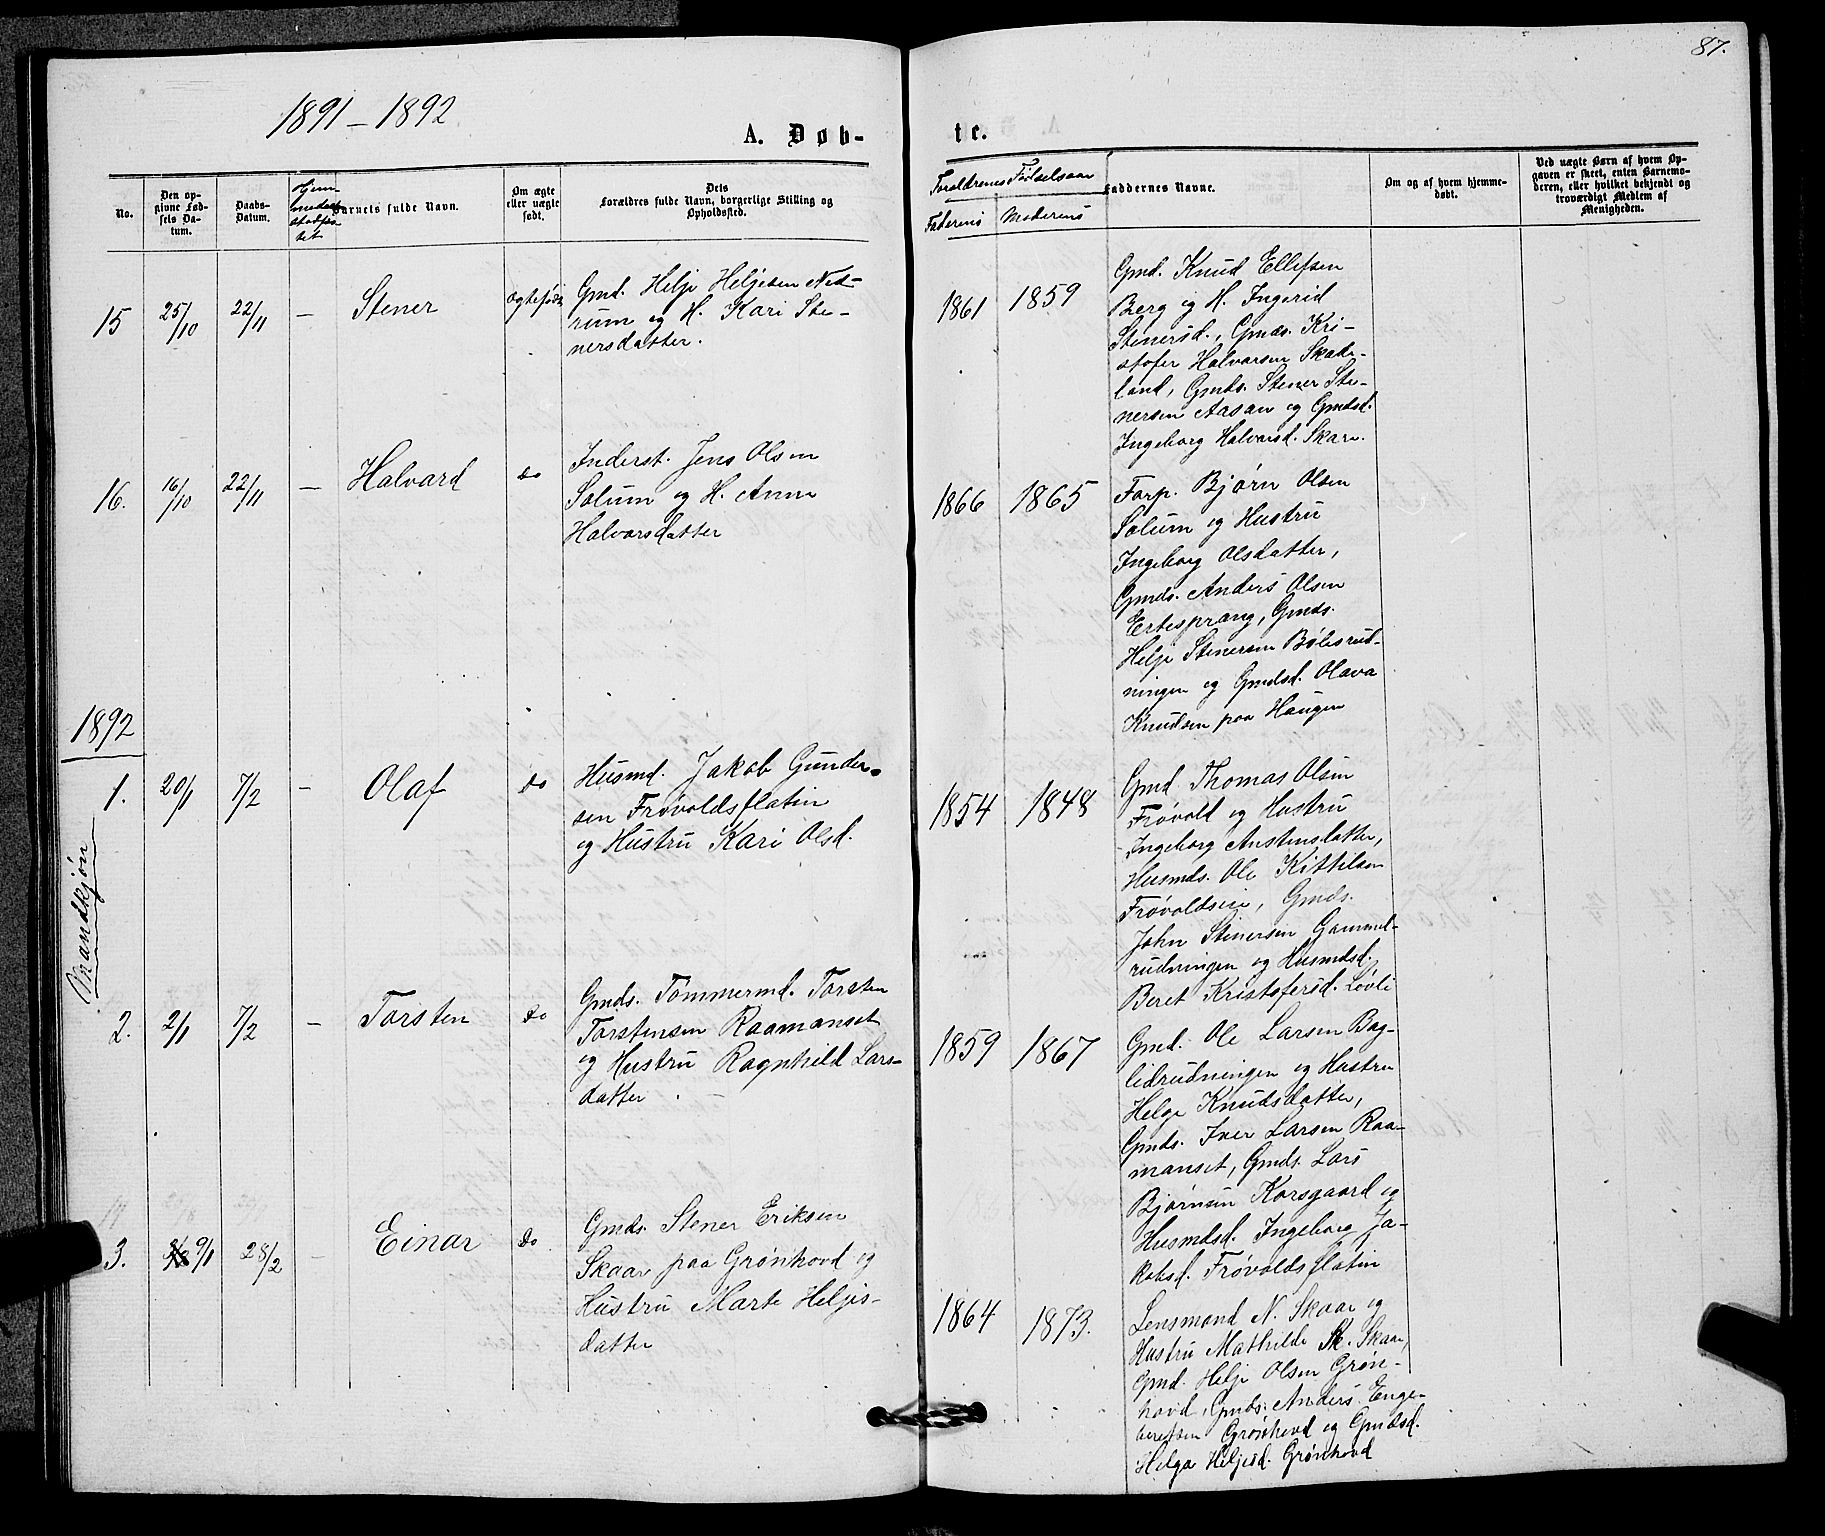 87.
1891-1892
A. Døb-
te.
No.
Den op-
givne Fød-
sels Da-
tum.
Daabs-
Datum.
Barnets fulde Navn.
Om ægte
eller uægte
født.
Dets
Forældres fulde Navn, borgerlige Stilling og
Opholdssted.
Forældrenes Fødselsaar
Faderens
Moderens
Faddernes Navne.
Om og af hvem hjemme-
døbt.
Ved uægte Børn af hvem Op-
gaven er skeet, enten Barnemo-
deren, eller hvilket bekjendt og
troværdigt Medlem af
Menigheden.
15
25/10
22/11
—
Stener
Ægtefødt
Gmd. Helje Heljesen Ned-
rum og H. Kari Ste-
nersdatter.
1861
1859
Gmd. Knud Ellefsen
Berg og H. Ingerid
Stenersd., Gmds. Kri-
stofer Halvarsen Skade-
land, Gmds. Stener Ste-
nersen Aasan og Gmdsd.
Ingeborg Halvorsd. Skare.
16.
16/10
22/11
—
Halvard
do
Inderst. Jens Olsen
Solum og H. Anne
Halvorsdatter
1866
1865
Forp. Bjørn Olsen
Solum og Hustru
Ingeborg Olsdatter,
Gmds. Anders Olsen
Ertesprang, Gmds.
Helje Stenersen Bølesrud-
ningen og Gmdsd. Olava
Knudsen paa Haugen
1892
Mandkjøn
1.
20/1
7/2
-
Olaf
do
Husmd. Jakob Gunder-
sen Frøvoldsflatin
og Hustru Kari Olsd.
1854
1848
Gmd. Thomas Olsen
Frøvold og Hustru
Ingeborg Austensdatter,
Husmds. Ole Kittilsen
Frøvoldseie, Gmds.
John Stenersen Gammel-
rudningen og Husmdsd.
Beret Kristofersd. Løvli
2.
2/1
7/2
—
Torsten
do
Gmds. Tømmermd. Torsten
Torstensen Raamanset
og Hustru Ragnhild Lars-
datter
1859
1867
Gmd. Ole Larsen Bag-
lidrudningen og Hustru
Helge Knudsdatter,
Gmds. Iver Larsen Raa-
manset, Gmds. Lars
Bjørnsen Korsgaard og
Husmdsd. Ingeborg Ja-
kobsd. Frøvoldsflatin
3.
9/1
28/2
—
Einar
do
Gmds. Stener Eriksen
Skaar paa Grønhovd og
Hustru Marte Heljes-
datter
1864
1873.
Lensmand N. Skaar og
Hustru Mathilde Sk. Skaar,
Gmd. Helje Olsen Grøn-
hovd, Gmds. Anders Enge-
bretsen Grønhovd og Gmdsd.
Helga Heljesd. Grønhovd